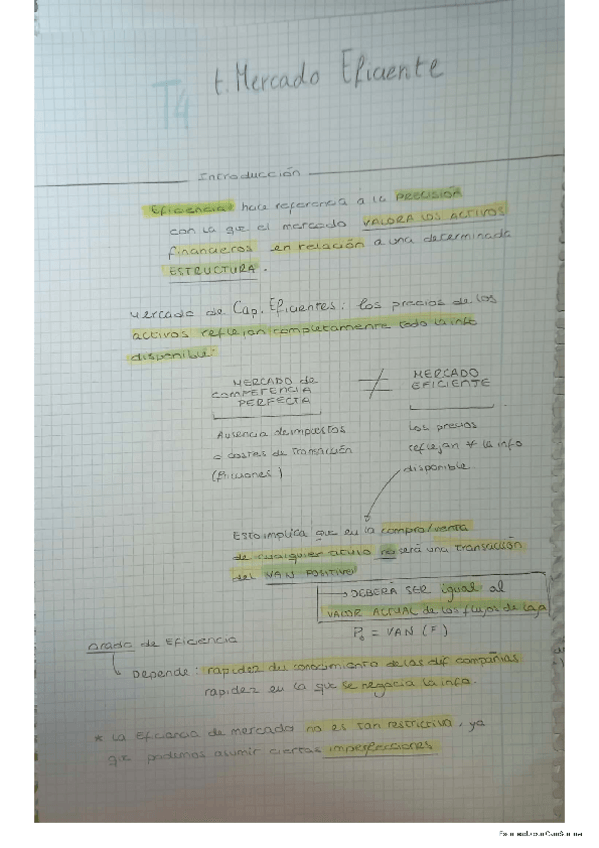 T4
t. Mercado Eficiente
Introducción
Eficiencia hace referencia a la PRECISIÓN
con la que el mercado VALORA LOS ACTIVOS
financieros en relación a una determinada
ESTRUCTURA.
Mercado de Cap. Eficientes: los precios de los
activos reflejan completamente toda la info
disponible.
MERCADO de COMPETENCIA PERFECTA ≠ MERCADO EFICIENTE
Ausencia de impuestos
o costes de transacción
(fricciones)
los precios
reflejan * la info
disponible.
Esto implica que en la compra/venta
de cualquier título no será una transacción
del VAN POSITIVO
→ DEBERÁ SER igual al
VALOR ACTUAL de los flujos de caja
P₀ = VAN (F)
Grado de Eficiencia
Depende: rapidez del conocimiento de las dif compañías
rapidez en la que se negocia la info.
* La eficiencia de mercado no es tan restrictiva, ya
que podemos asumir ciertas imperfecciones